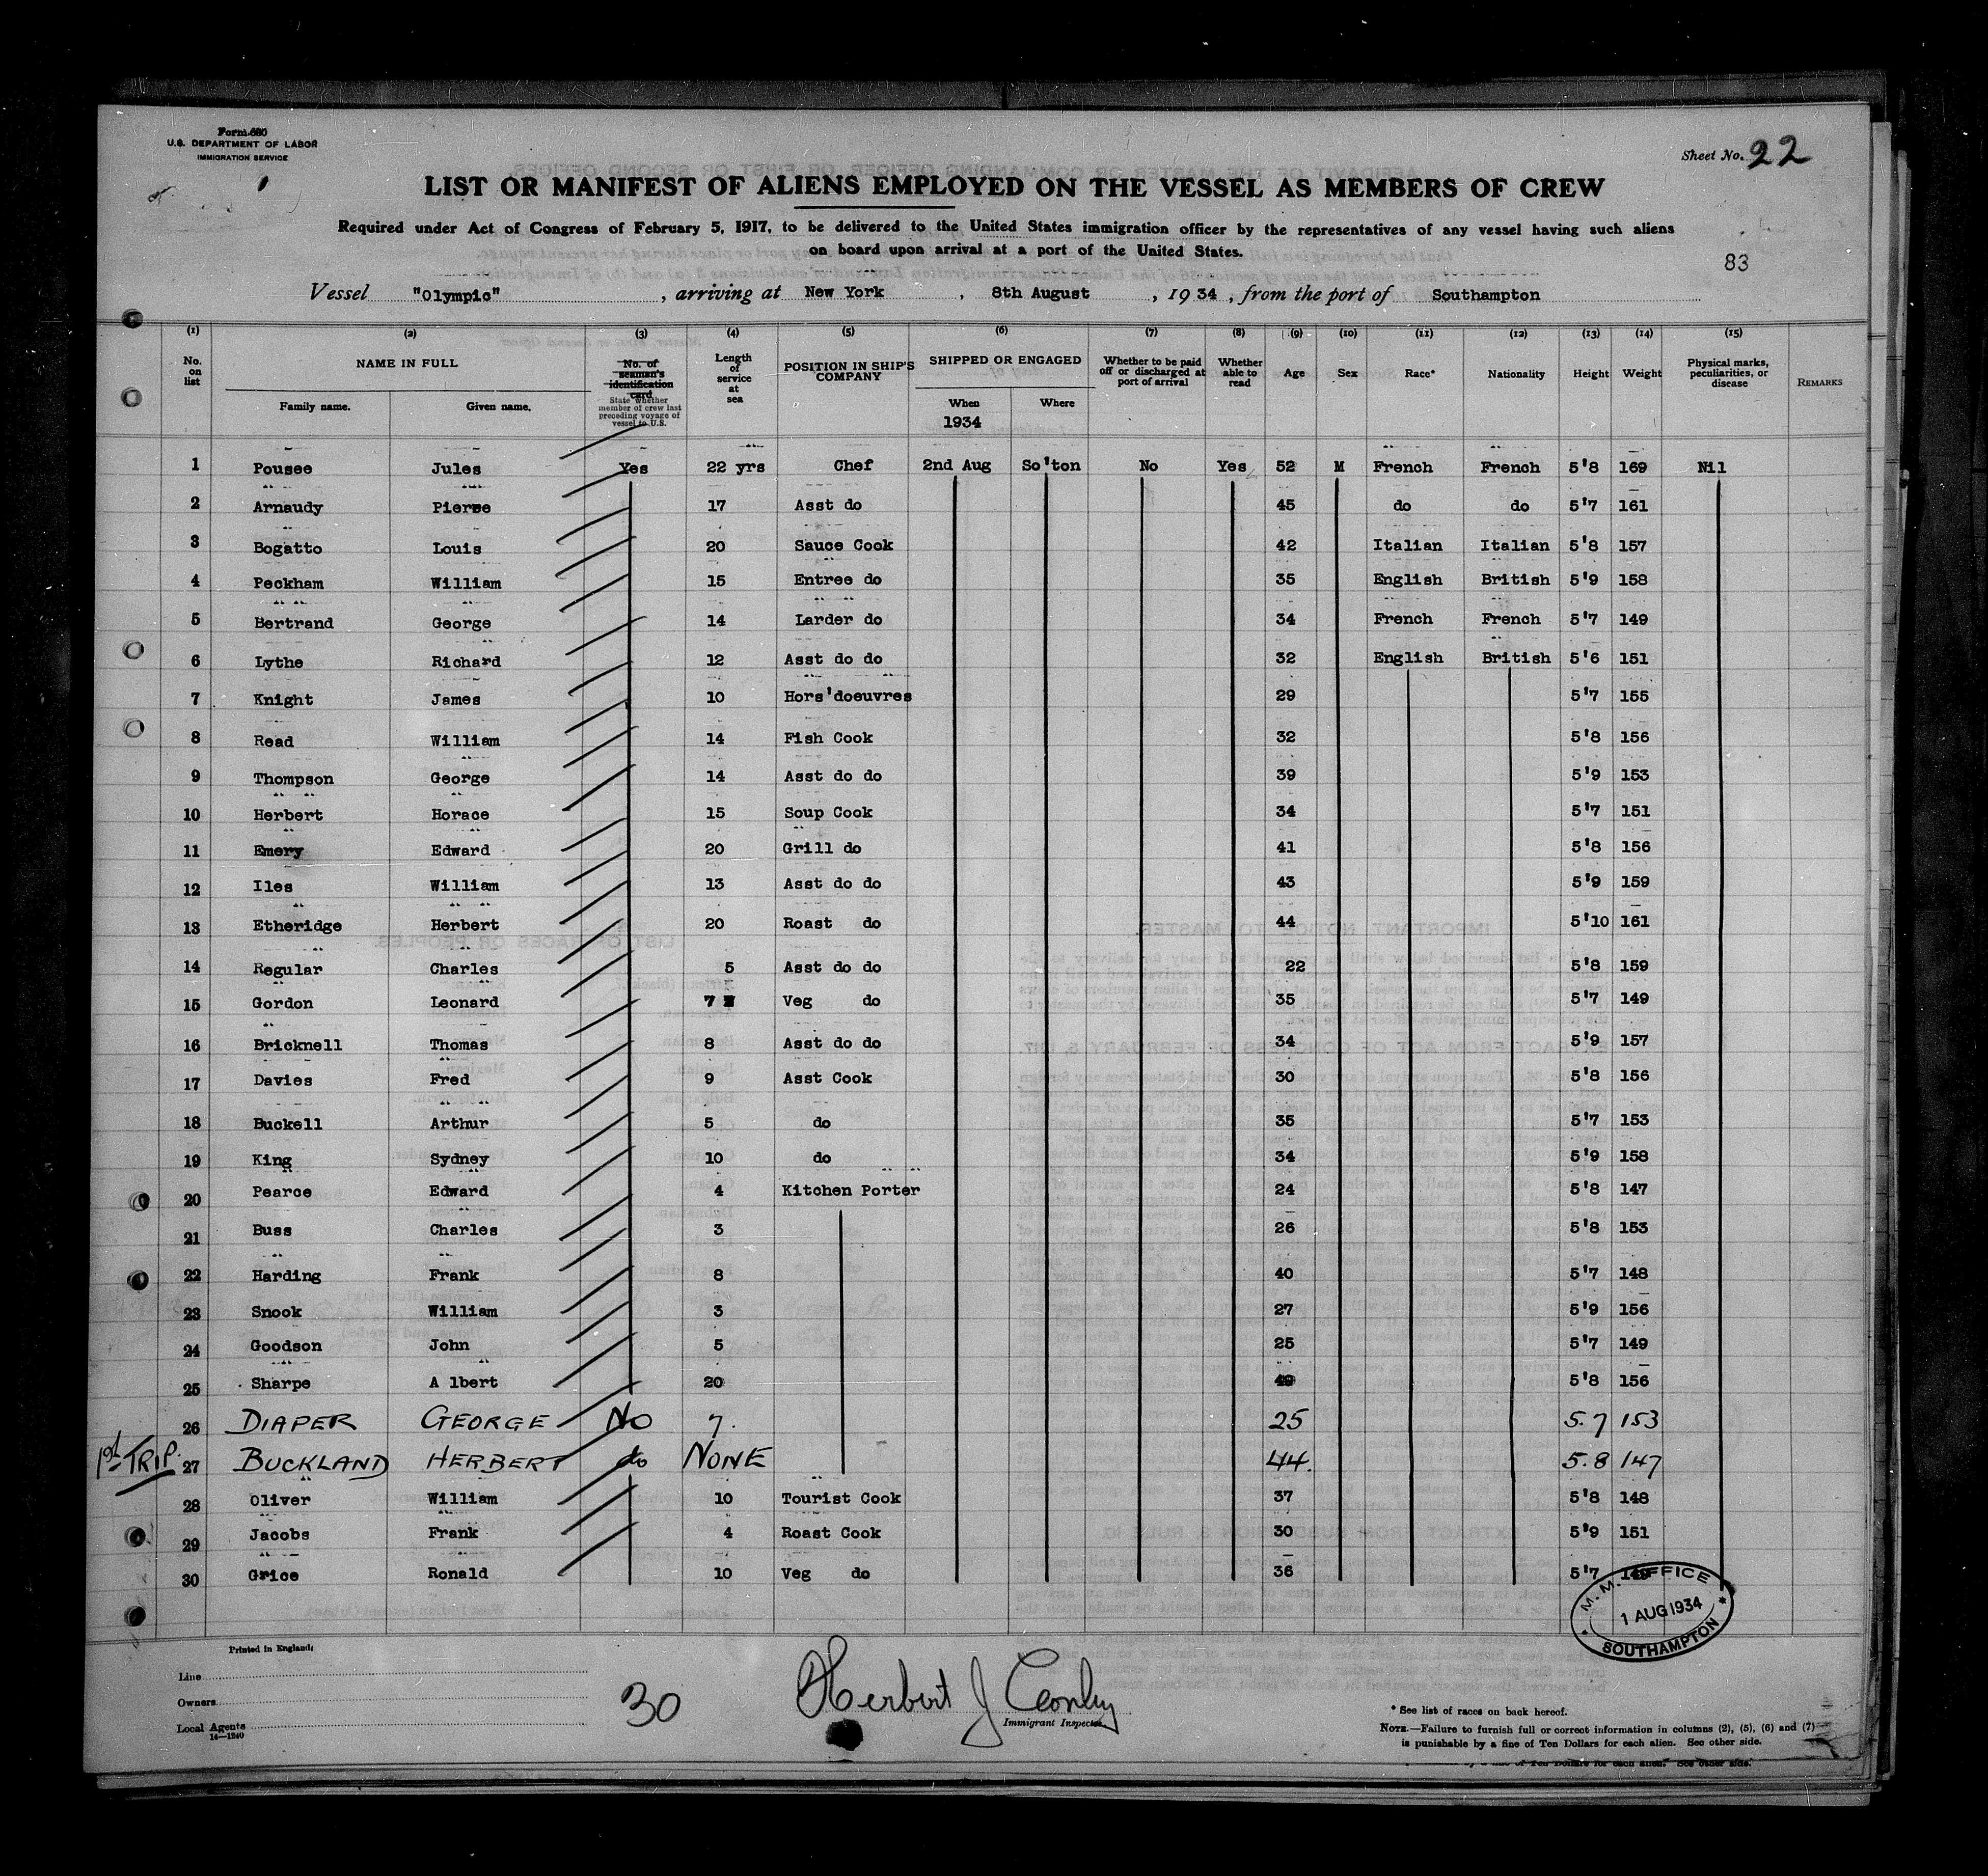 Form 680
U.S. DEPARTMENT OF LABOR
IMMIGRATION SERVICE
Sheet No. 22
LIST OR MANIFEST OF ALIENS EMPLOYED ON THE VESSEL AS MEMBERS OF CREW
Required under Act of Congress of February 5, 1917, to be delivered to the United States immigration officer by the representatives of any vessel having such aliens
on board upon arrival at a port of the United States.
83
Vessel "Olympic", arriving at New York, 8th August, 1934, from the port of Southampton
(1) (2) (3) (4) (5) (6) (7) (8) (9) (10) (11) (12) (13) (14) (15)
No. on list NAME IN FULL Family name. Given name. No. of seaman's identification card State whether member of crew last preceding voyage of vessel to U.S. Length of service at sea POSITION IN SHIP'S COMPANY SHIPPED OR ENGAGED When 1934 Where Whether to be paid off or discharged at port of arrival Whether able to read Age Sex Race* Nationality Height Weight Physical marks, peculiarities, or disease REMARKS
1 Pousee Jules Yes 22 yrs Chef 2nd Aug So'ton No Yes 52 M French French 5'8 169 Nil
2 Arnaudy Pierre 17 Asst do 45 do do 5'7 161
3 Bogatto Louis 20 Sauce Cook 42 Italian Italian 5'8 157
4 Peckham William 15 Entree do 35 English British 5'9 158
5 Bertrand George 14 Larder do 34 French French 5'7 149
6 Lythe Richard 12 Asst do do 32 English British 5'6 151
7 Knight James 10 Hors'doeuvres 29 5'7 155
8 Read William 14 Fish Cook 32 5'8 156
9 Thompson George 14 Asst do do 39 5'9 153
10 Herbert Horace 15 Soup Cook 34 5'7 151
11 Emery Edward 20 Grill do 41 5'8 156
12 Iles William 13 Asst do do 43 5'9 159
13 Etheridge Herbert 20 Roast do 44 5'10 161
14 Regular Charles 5 Asst do do 22 5'8 159
15 Gordon Leonard 7 Veg do 35 5'7 149
16 Bricknell Thomas 8 Asst do do 34 5'9 157
17 Davies Fred 9 Asst Cook 30 5'8 156
18 Buckell Arthur 5 do 35 5'7 153
19 King Sydney 10 do 34 5'9 158
20 Pearce Edward 4 Kitchen Porter 24 5'8 147
21 Buss Charles 3 26 5'8 153
22 Harding Frank 8 40 5'7 148
23 Snook William 3 27 5'9 156
24 Goodson John 5 25 5'7 149
25 Sharpe A lbert 20 5'8 156
26 DIAPER GEORGE No 7. 25 5.7 153
1st TRIP. 27 BUCKLAND HERBERT do NONE 44. 5.8 147
28 Oliver William 10 Tourist Cook 37 5'8 148
29 Jacobs Frank 4 Roast Cook 30 5'9 151
30 Grice Ronald 10 Veg do 36 5'7
M. M. OFFICE
1 AUG 1934
SOUTHAMPTON
Printed in England
Line
Owners
Local Agents
14—1240
30
Herbert J
Immigrant Inspector
* See list of races on back hereof.
NOTE.—Failure to furnish full or correct information in columns (2), (5), (6) and (7)
is punishable by a fine of Ten Dollars for each alien. See other side.